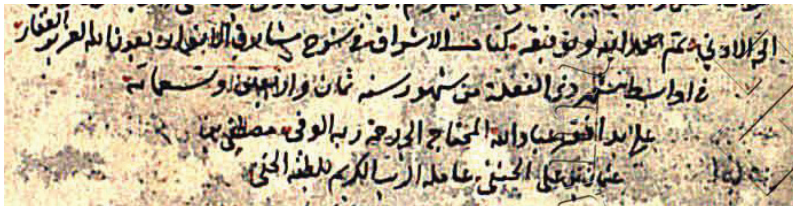 الى الادنى تم بحمد الله وتوفيقه كتاب الاشراق في شرح مشارق الانوار بعون الله العزيز الغفار
في اواسط شهر ذي القعدة من شهور سنة ثمان واربعين وتسعمائة
على يد افقر عباد الله المحتاج الى رحمة ربه الوفى مصطفى بن
عثمان بن على الحنفى عامله الرب الكريم بلطفه الخفى